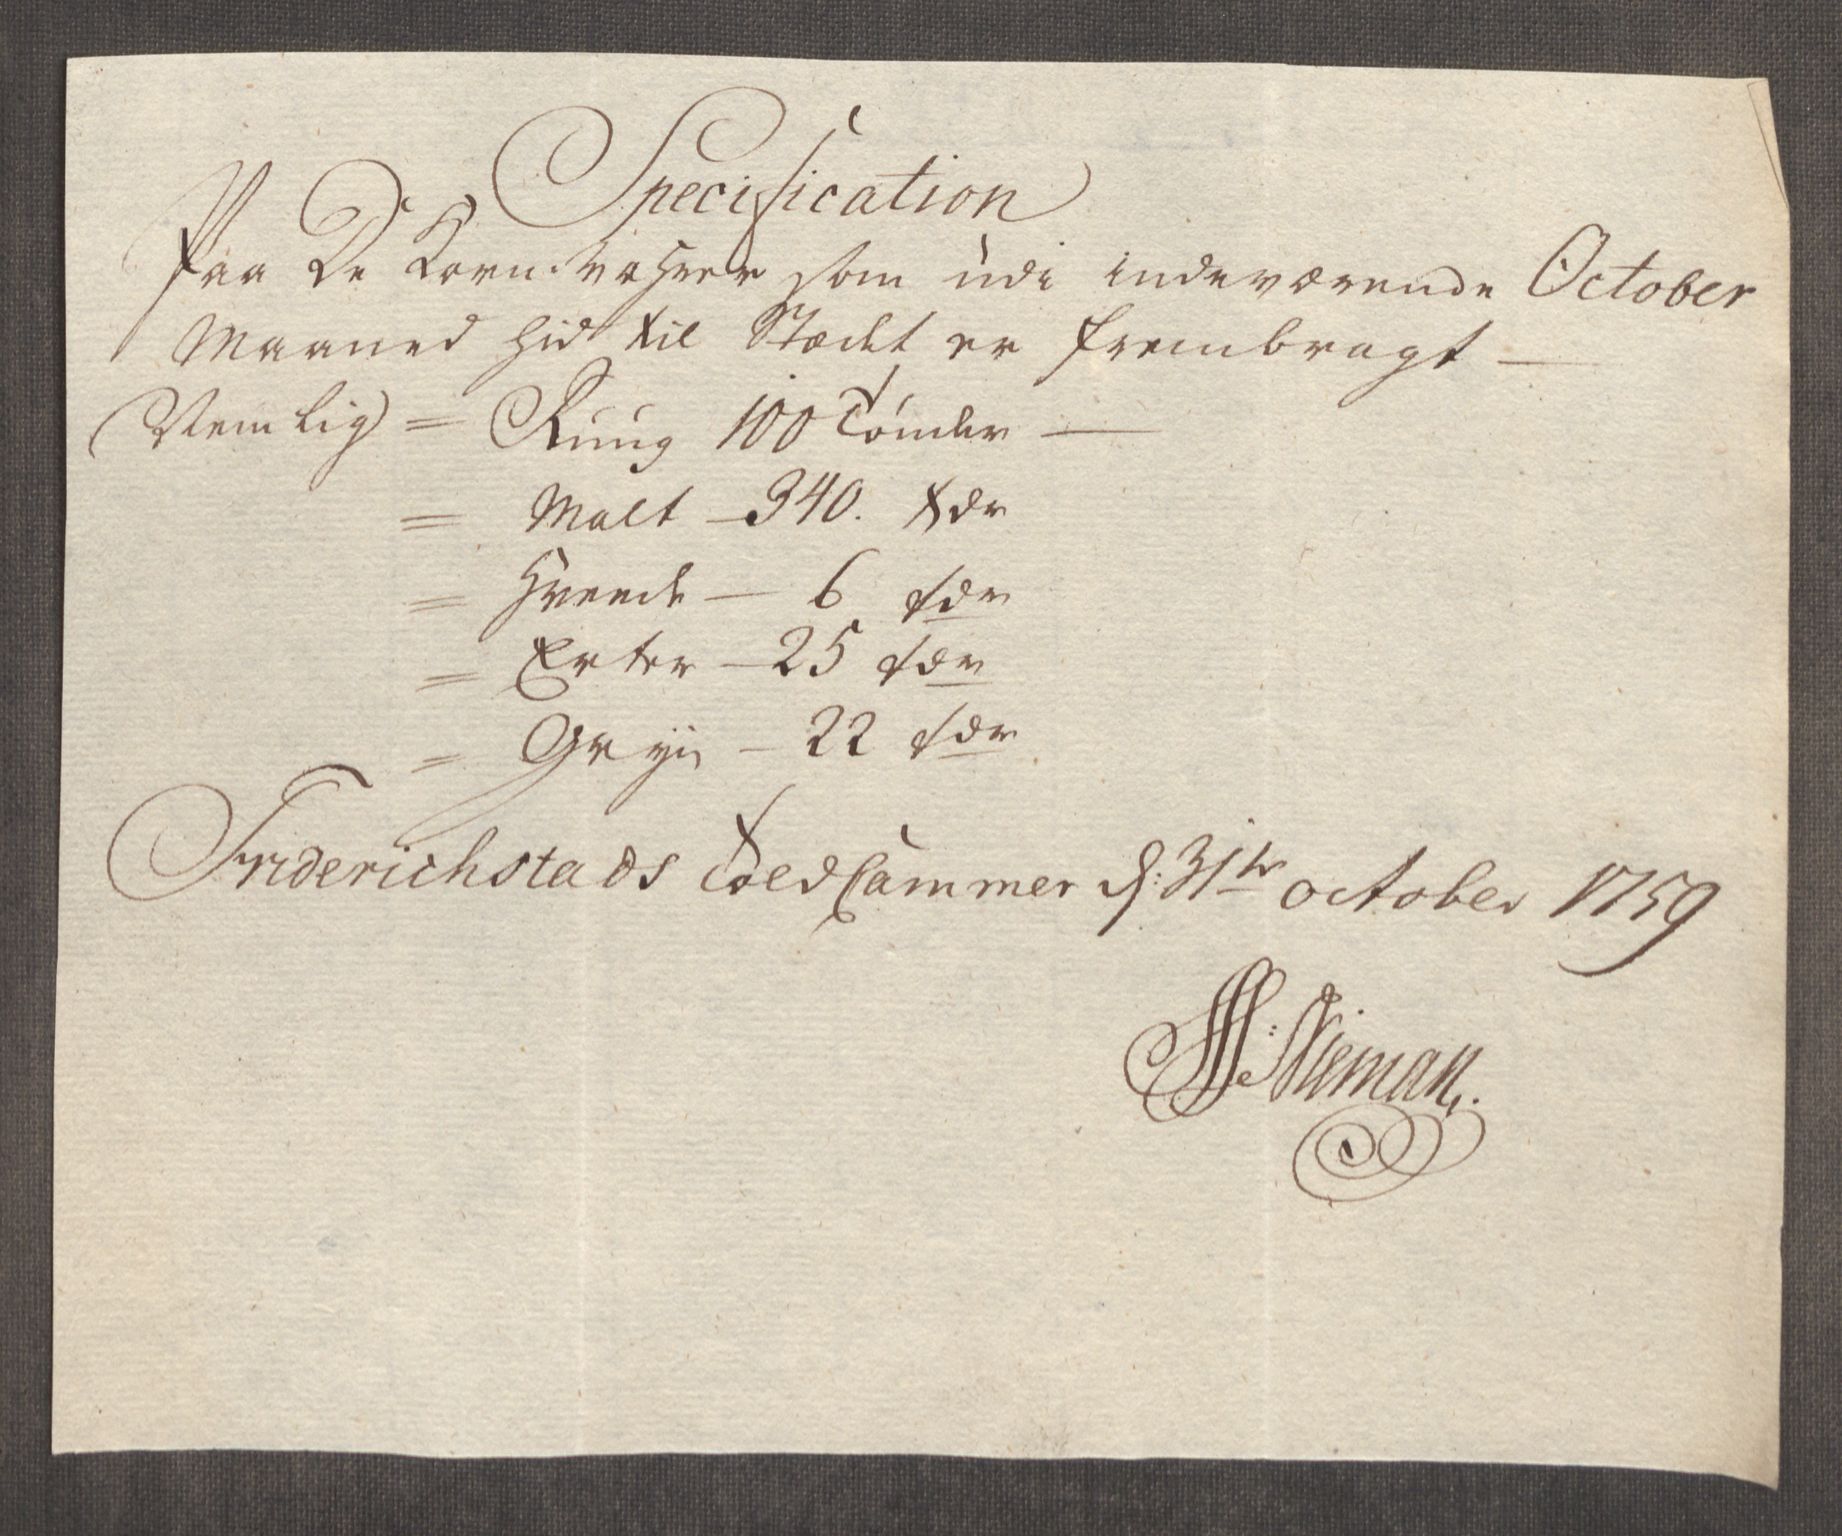 Specification
Paa De Korn Vahrer som udi indeværende October
Maaned hid til Stædet er frembragt —
Nemlig = Ruug 100 Tønder —
= Malt — 340. tdr
= Hveede — 6 tdr
= Erter — 25 tdr
= Gryn — 22 tdr
Friderichstads Told Cammer d: 31te october 1759
Nieman